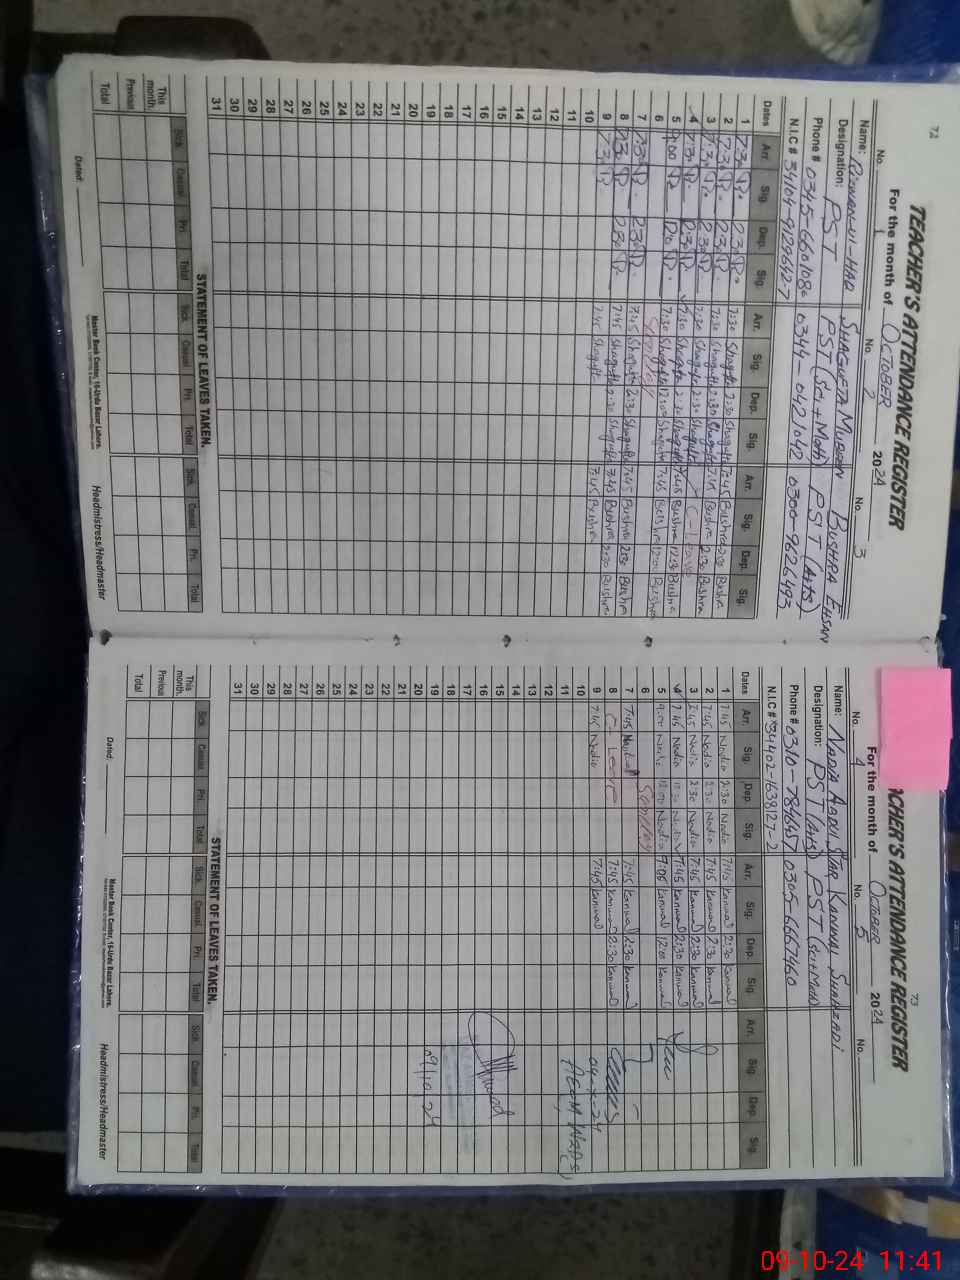 72
TEACHER'S ATTENDANCE REGISTER
For the month of OCTOBER 2024
No. 1 No. 2 No. 3
Name: RIZWAN-UL-HAQ SHAGUFTA MUBEEN BUSHRA EHSAN
Designation: PST PST (Sci+Math) PST (Arts)
Phone # 0345-6601080 0344-0421042 0300-9626493
N.I.C # 34104-9129642-7
Dates Arr. Sig. Dep. Sig. Arr. Sig. Dep. Sig. Arr. Sig. Dep. Sig.
1 7:30 2:30 7:30 Shagufta 2:30 Shagufta 7:45 Bushra 2:30 Bushra
2 7:30 2:30 7:30 Shagufta 2:30 Shagufta 7:45 Bushra 2:30 Bushra
3 7:30 2:30 7:30 Shagufta 2:30 Shagufta C-Leave
4 7:30 2:30 7:30 Shagufta 2:30 Shagufta 7:45 Bushra 12:30 Bushra
5 9:00 12:0 7:30 Shagufta 12:00 Shagufta 7:45 Bushra 12:00 Bushra
6 Sunday
7 7:30 2:30 7:45 Shagufta 2:30 Shagufta 7:45 Bushra 2:30 Bushra
8 7:30 2:30 7:45 Shagufta 2:30 Shagufta 7:45 Bushra 2:30 Bushra
9 7:30 7:45 Shagufta 7:45 Bushra
10
11
12
13
14
15
16
17
18
19
20
21
22
23
24
25
26
27
28
29
30
31
STATEMENT OF LEAVES TAKEN.
Sick Casual Pri. Total Sick Casual Pri. Total Sick Casual Pri. Total
This month.
Previous
Total
Dated:
Master Book Center, 16-Urdu Bazar Lahore.
Headmistress/Headmaster
73
ACHER'S ATTENDANCE REGISTER
For the month of OCTOBER 2024
No. 4 No. 5 No.
Name: NADIA ABDUL STAR KANWAL SHAHZADI
Designation: PST (Arts) PST (Sci+Math)
Phone # 0310-7846457 0305-6667460
N.I.C # 34402-1638127-2
Dates Arr. Sig. Dep. Sig. Arr. Sig. Dep. Sig. Arr. Sig. Dep. Sig.
1 7:45 Nadia 2:30 Nadia 7:45 Kanwal 2:30 Kanwal
2 7:45 Nadia 2:30 Nadia 7:45 Kanwal 2:30 Kanwal
3 7:45 Nadia 2:30 Nadia 7:45 Kanwal 2:30 Kanwal
4 7:45 Nadia Nadia 7:45 Kanwal 2:30 Kanwal
5 9:00 Nadia 12:00 Nadia 9:06 Kanwal 12:00 Kanwal
6 Sunday
7 7:45 Nadia 7:45 Kanwal 2:30 Kanwal
8 C-Leave 7:45 Kanwal 2:30 Kanwal
9 7:45 Nadia 7:45 Kanwal
10
11
12
13
14
15
16
17
18
19
20
21
22
23
24
25
26
27
28
29
30
31
09/10/24
STATEMENT OF LEAVES TAKEN.
Sick Casual Pri. Total Sick Casual Pri. Total Sick Casual Pri. Total
This month.
Previous
Total
Dated:
Master Book Center, 16-Urdu Bazar Lahore.
Headmistress/Headmaster
09-10-24 11:41